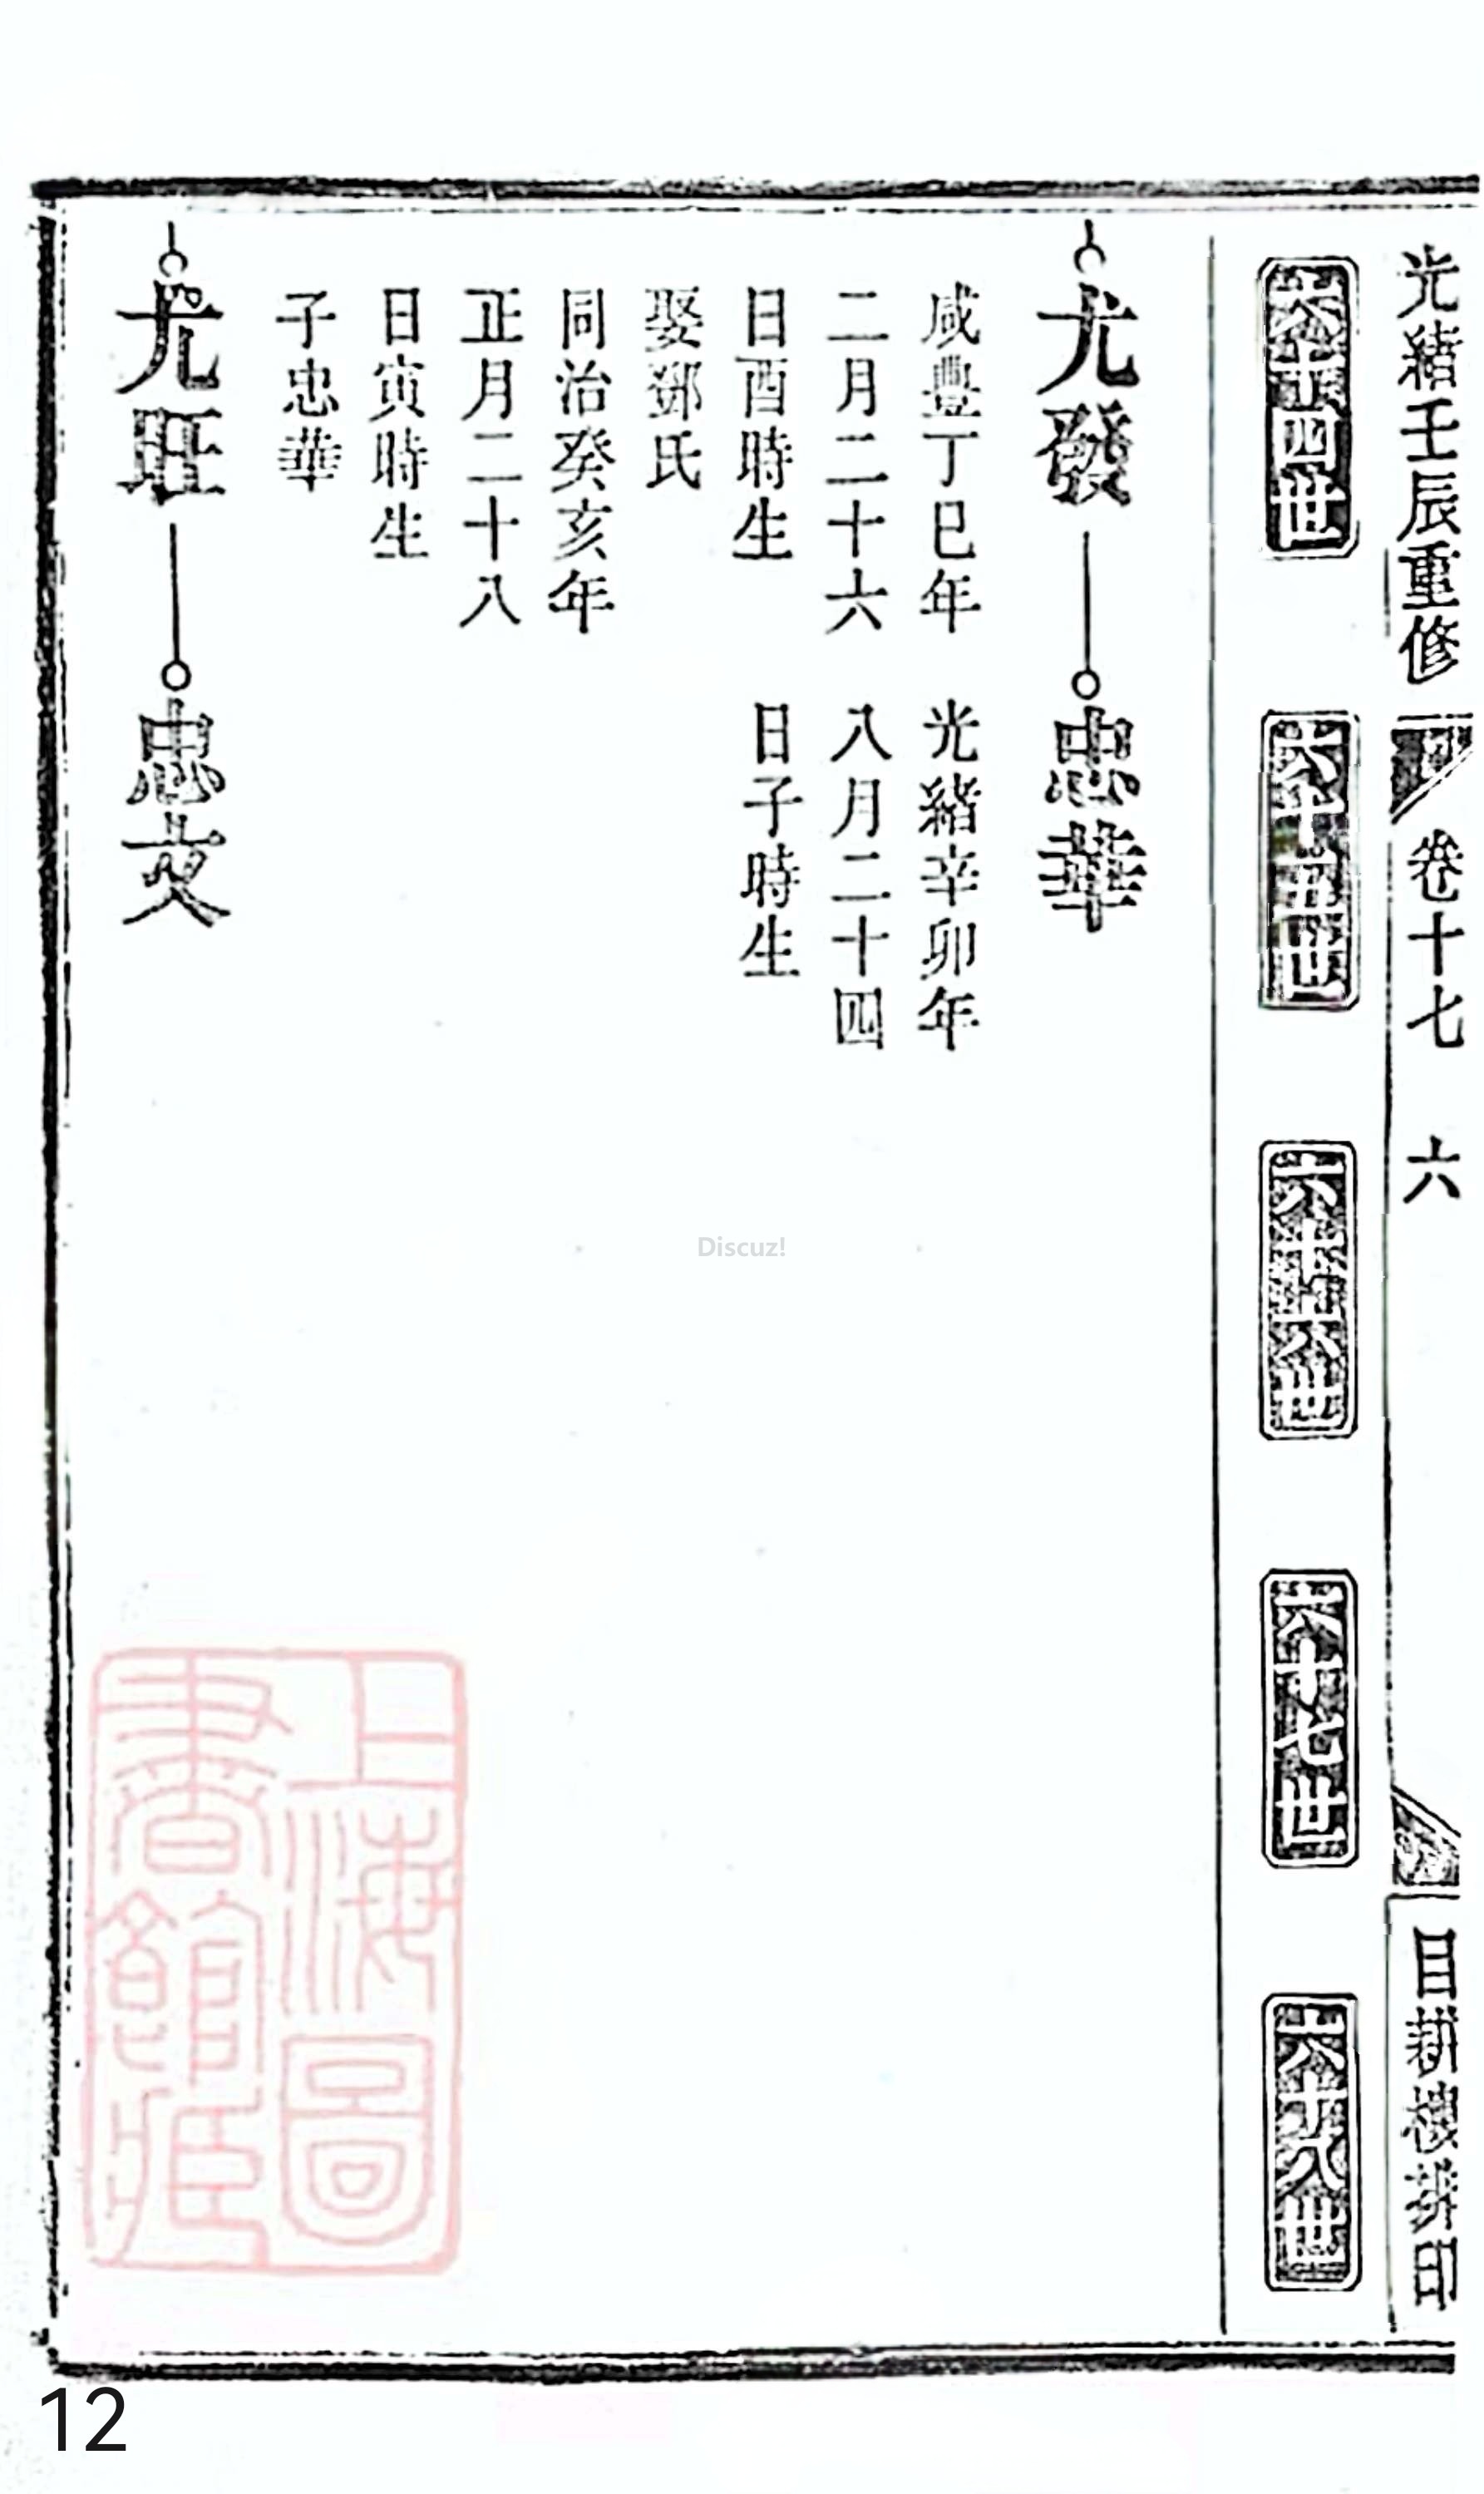 光緒壬辰重修
卷十七
六
目耕樓拼印
六十四世
六十五世
六十六世
六十七世
六十八世
尤發
忠華
咸豐丁巳年
二月二十六
日酉時生
娶鄧氏
同治癸亥年
正月二十八
日寅時生
子忠華
光緒辛卯年
八月二十四
日子時生
尤旺
忠文
上海圖
書館藏
Discuz!
12